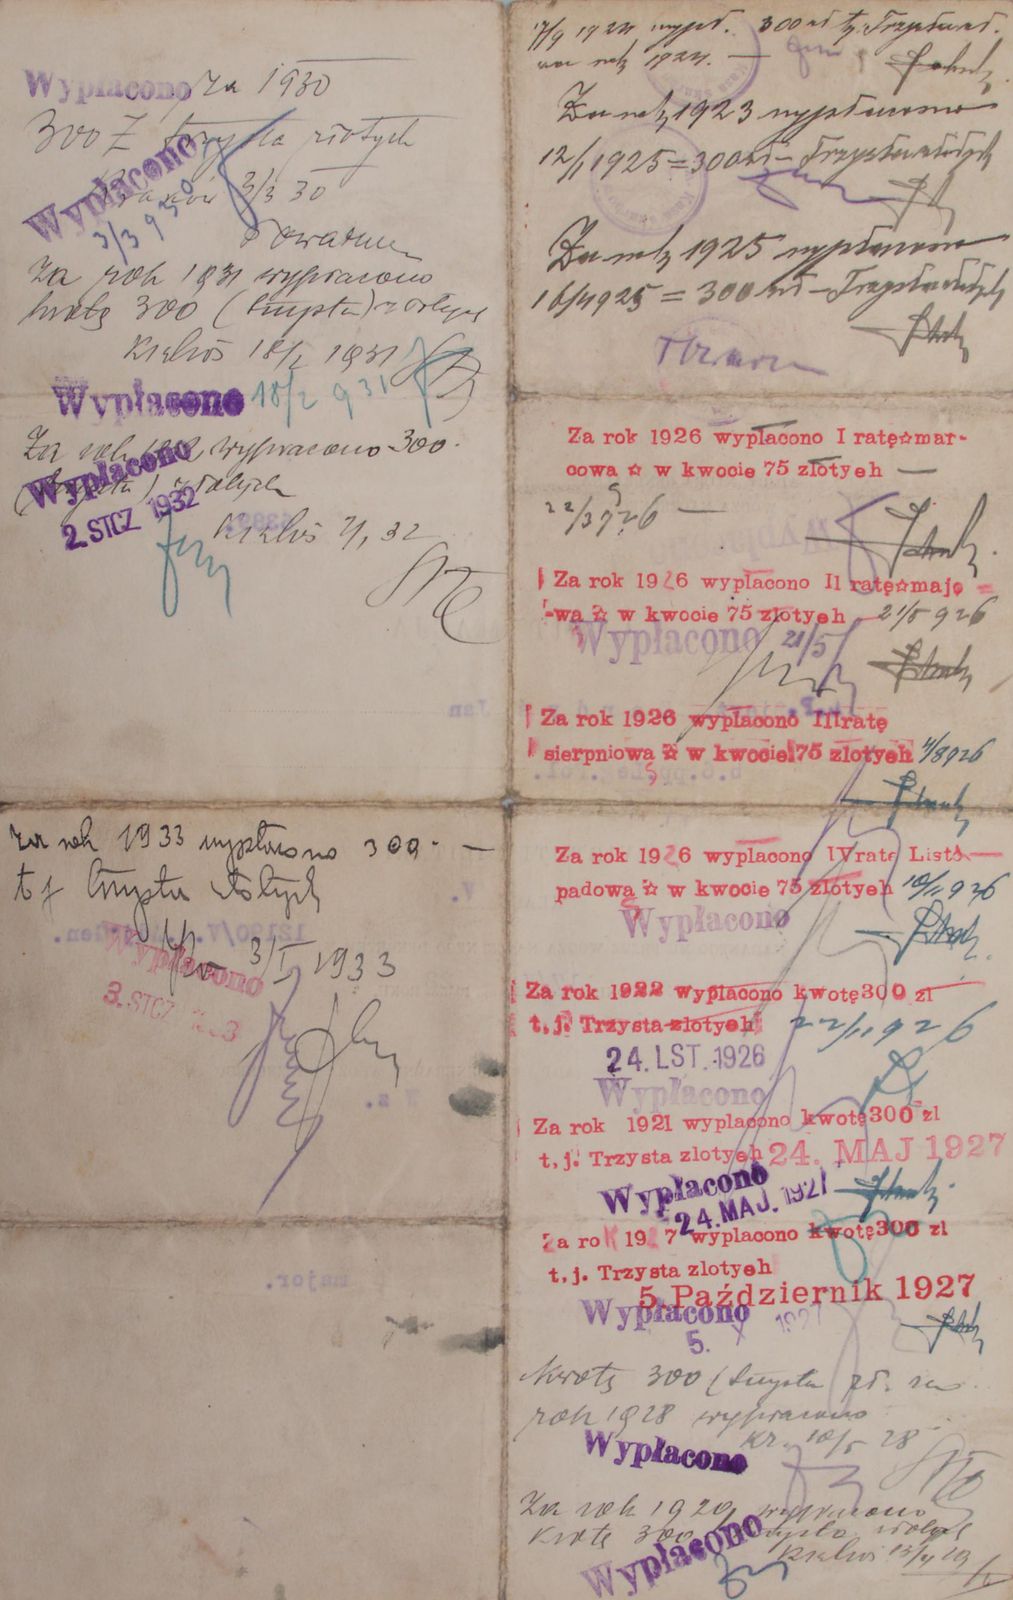 Wypłacono za 1930
300 Z trzysta złotych
Kraków 3/3 30
Wypłacono
3/3 930
Za rok 1931 wypłacono
kwotę 300 (trzysta) złotych
Kraków 18/2 1931
Wypłacono 18/2 931
Za rok 1932 wypłacono 300.
(trzysta) złotych
Wypłacono
2. STCZ 1932
Kraków 2/1 32
Za rok 1933 wypłacono 300.—
tj trzysta złotych
3/I 1933
Wypłacono
3. STCZ
major.
17/9 1924 wypł. 300 zł tj. Trzysta zł.
na rok 1924. —
Za rok 1923 wypłacono
12/1 1925 = 300 zł – Trzysta złotych
Za rok 1925 wypłacono
16/4 1925 = 300 zł – Trzysta złotych
Za rok 1926 wypłacono I ratę☆mar-
cowa ☆ w kwocie 75 złotych —
22/3 926 —
Za rok 1926 wypłacono II ratę☆majo
-wa ☆ w kwocie 75 złotych 21/5 926
Wypłacono 21/5
Za rok 1926 wypłacono III ratę
sierpniowa ☆ w kwocie 75 złotych 4/8 926
Za rok 1926 wypłacono IV ratę Listo
padowa ☆ w kwocie 75 złotych 10/11 926
Wypłacono
Za rok 1922 wypłacono kwotę 300 zl
t. j. Trzysta złotych 22/11 926
24. LST. 1926
Wypłacono
Za rok 1921 wypłacono kwotę 300 zl
t. j. Trzysta złotych 24. MAJ 1927
Wypłacono
24. MAJ. 1927
Za rok 1927 wypłacono kwotę 300 zl
t. j. Trzysta złotych
5 Październik 1927
Wypłacono
5. X 1927
Kwotę 300 (trzysta zł. za
rok 1928 wypłacono
Kr. 10/5 28
Wypłacono
Za rok 1929 wypłacono
Kwotę 300 trzysta złotych
Wypłacono
Kraków